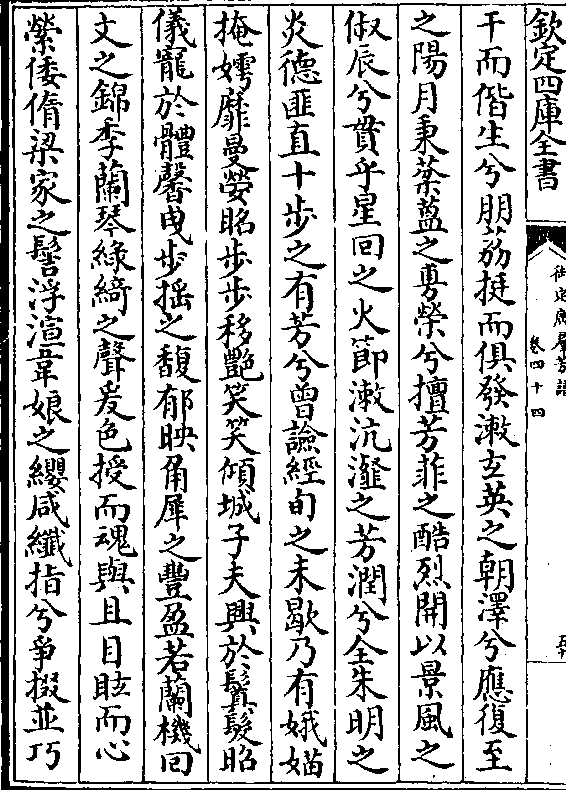 欽定四庫全書
卷四十四
干而偕生兮朋荔挺而俱發潄玄英之朝澤兮應復至
之陽月秉蘂蕋之夐榮兮擅芳菲之酷烈開以景風之
俶辰兮貫乎星回之火節潄沆瀣之芳潤兮全朱明之
炎德匪直十步之有芳兮曾論經旬之未歇乃有娥媌
掩嫮靡曼嫈眳步步移艷笑笑傾城子夫興於鬒髮昭
儀寵於體馨曳步揺之馥郁映角犀之豐盈若蘭機回
文之錦季蘭琴綠綺之聲爰色授而魂與且目眩而心
縈倭㣮梁家之髻浮渲韋娘之纓咸纖指兮爭掇並巧